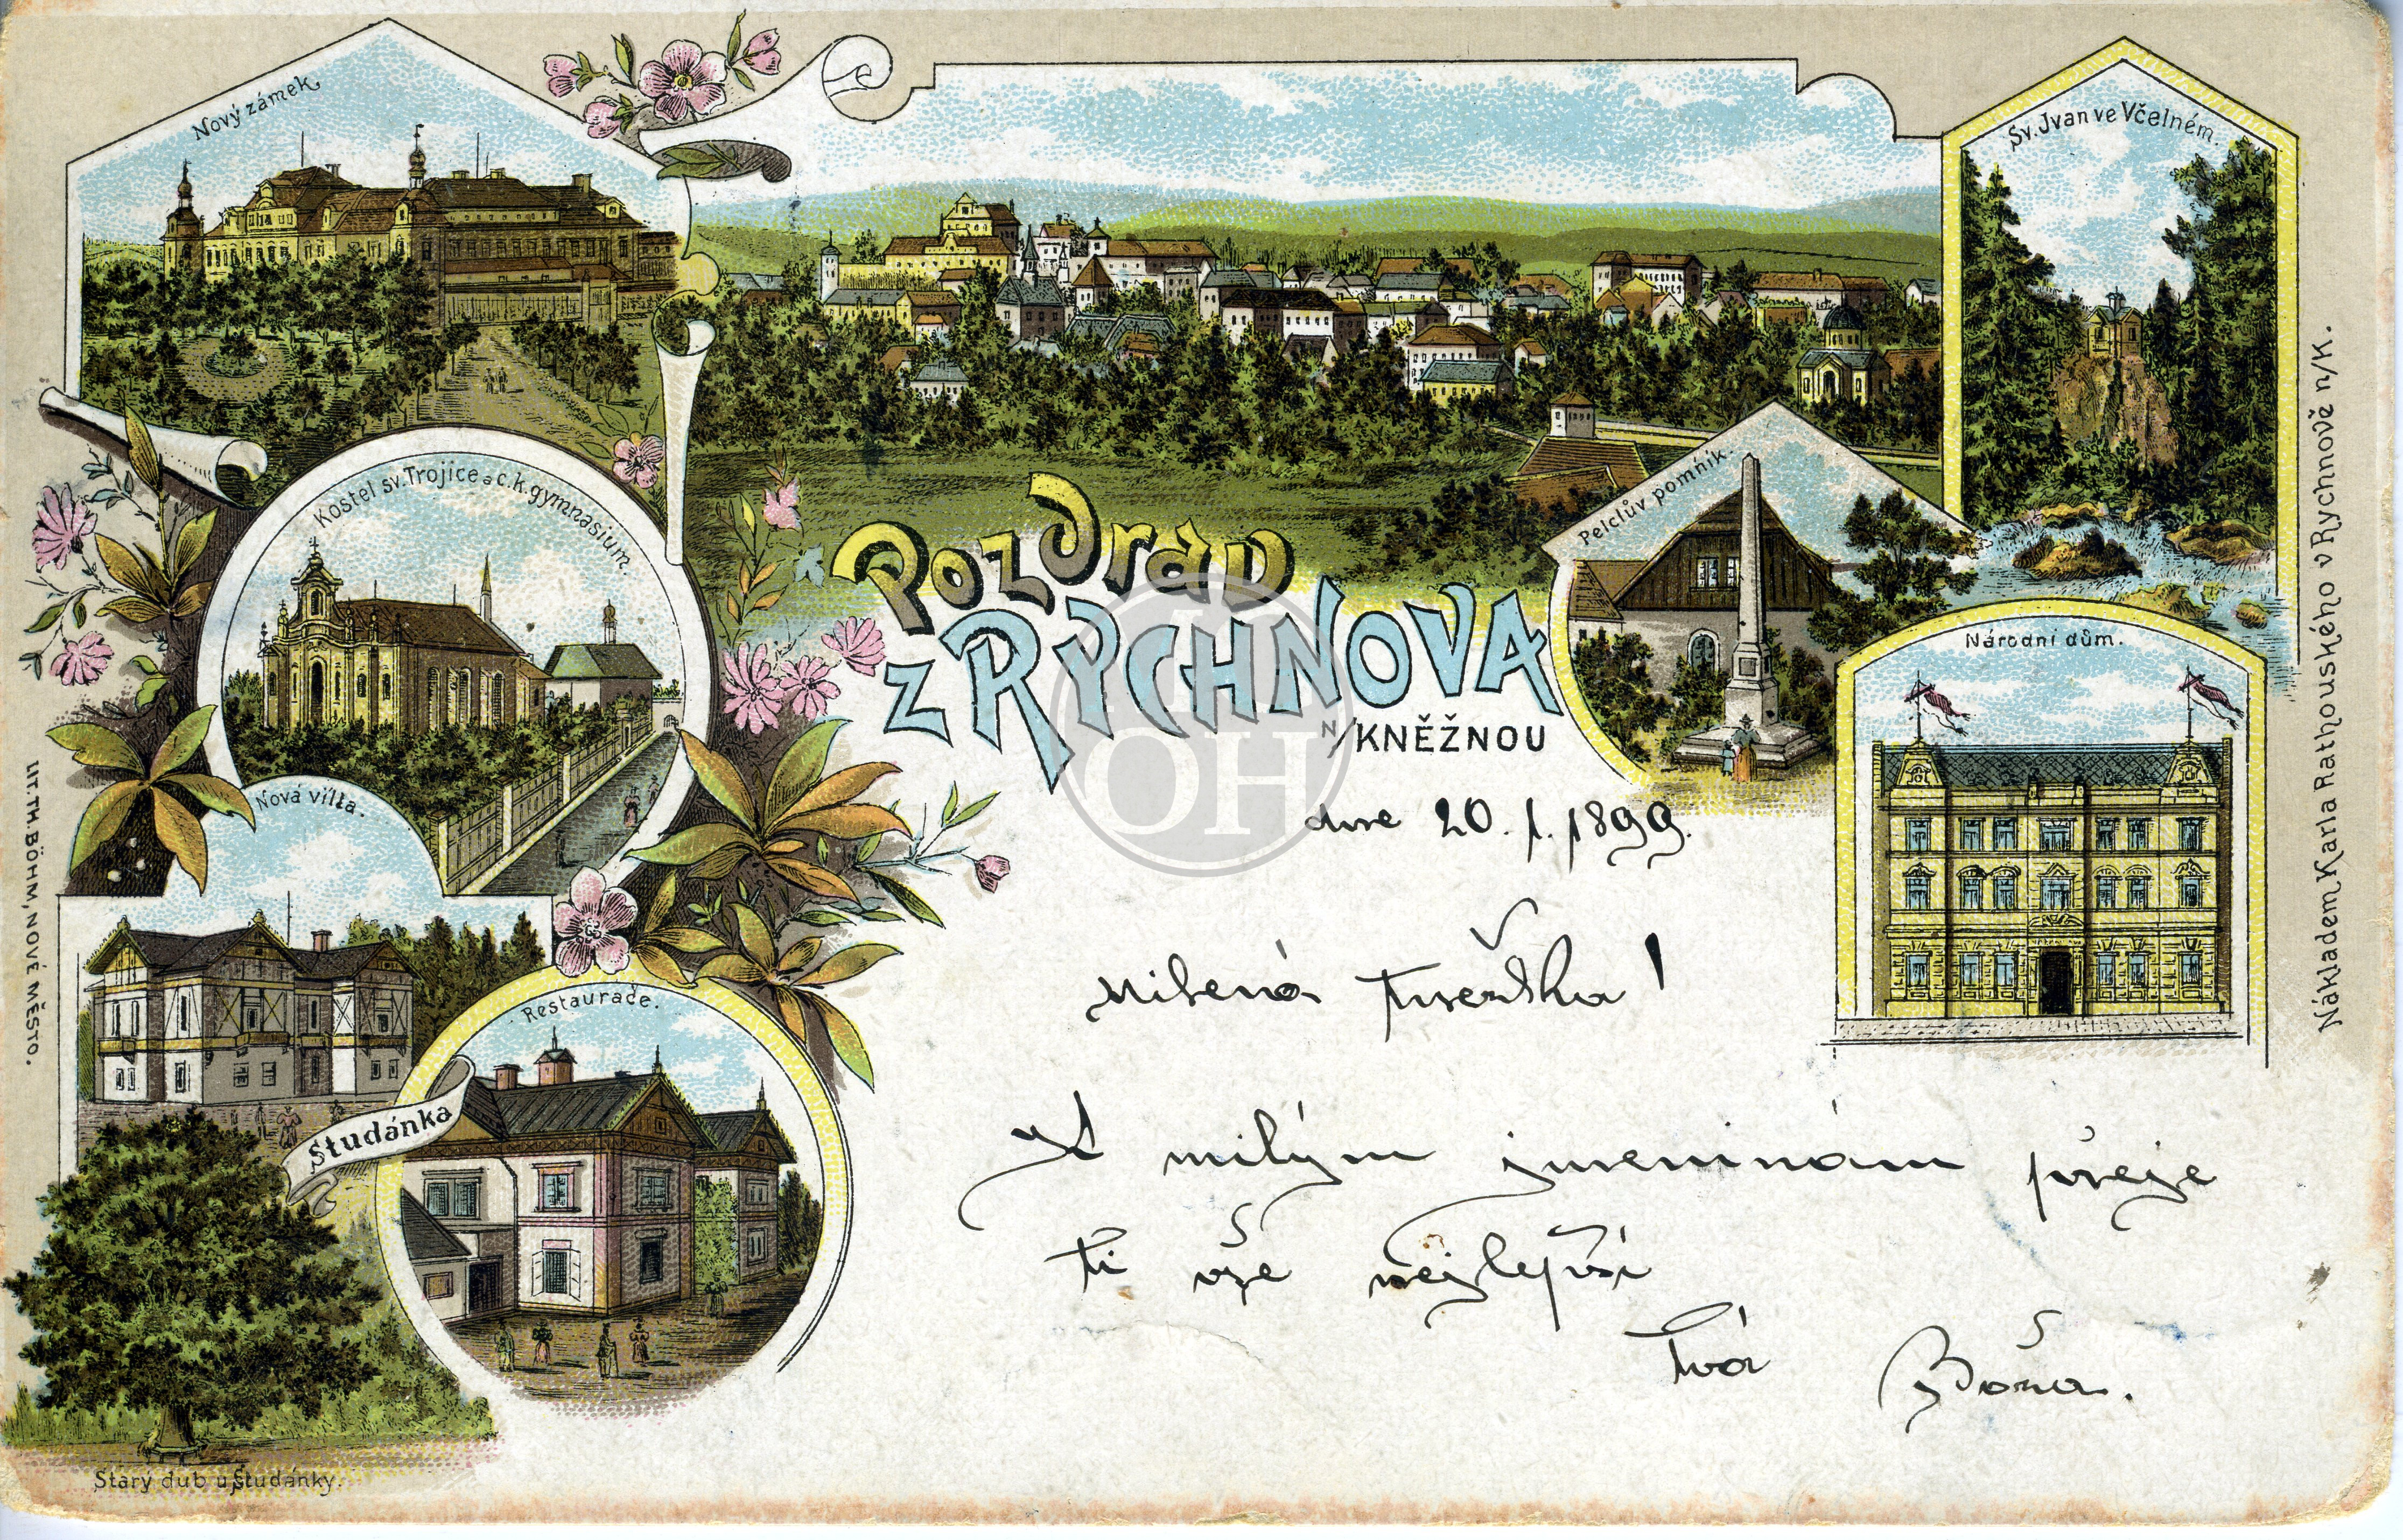 Nový zámek.
Sv. Jvan ve Včelném.
Kostel sv. Trojice a c. k. gymnasium.
Pelclův pomník.
Pozdrav
z RYCHNOVA
N/KNĚŽNOU
Národní dům.
Nová villa.
Restaurace.
Studánka
Starý dub u Studánky.
LIT. TH. BÖHM, NOVÉ MĚSTO.
Nákladem Karla Rathouského v Rychnově n/K.
dne 20. 1. 1899.
Milená
K milým jmeninám přeje
ti vše nejlepší
tvá Boža.
OH